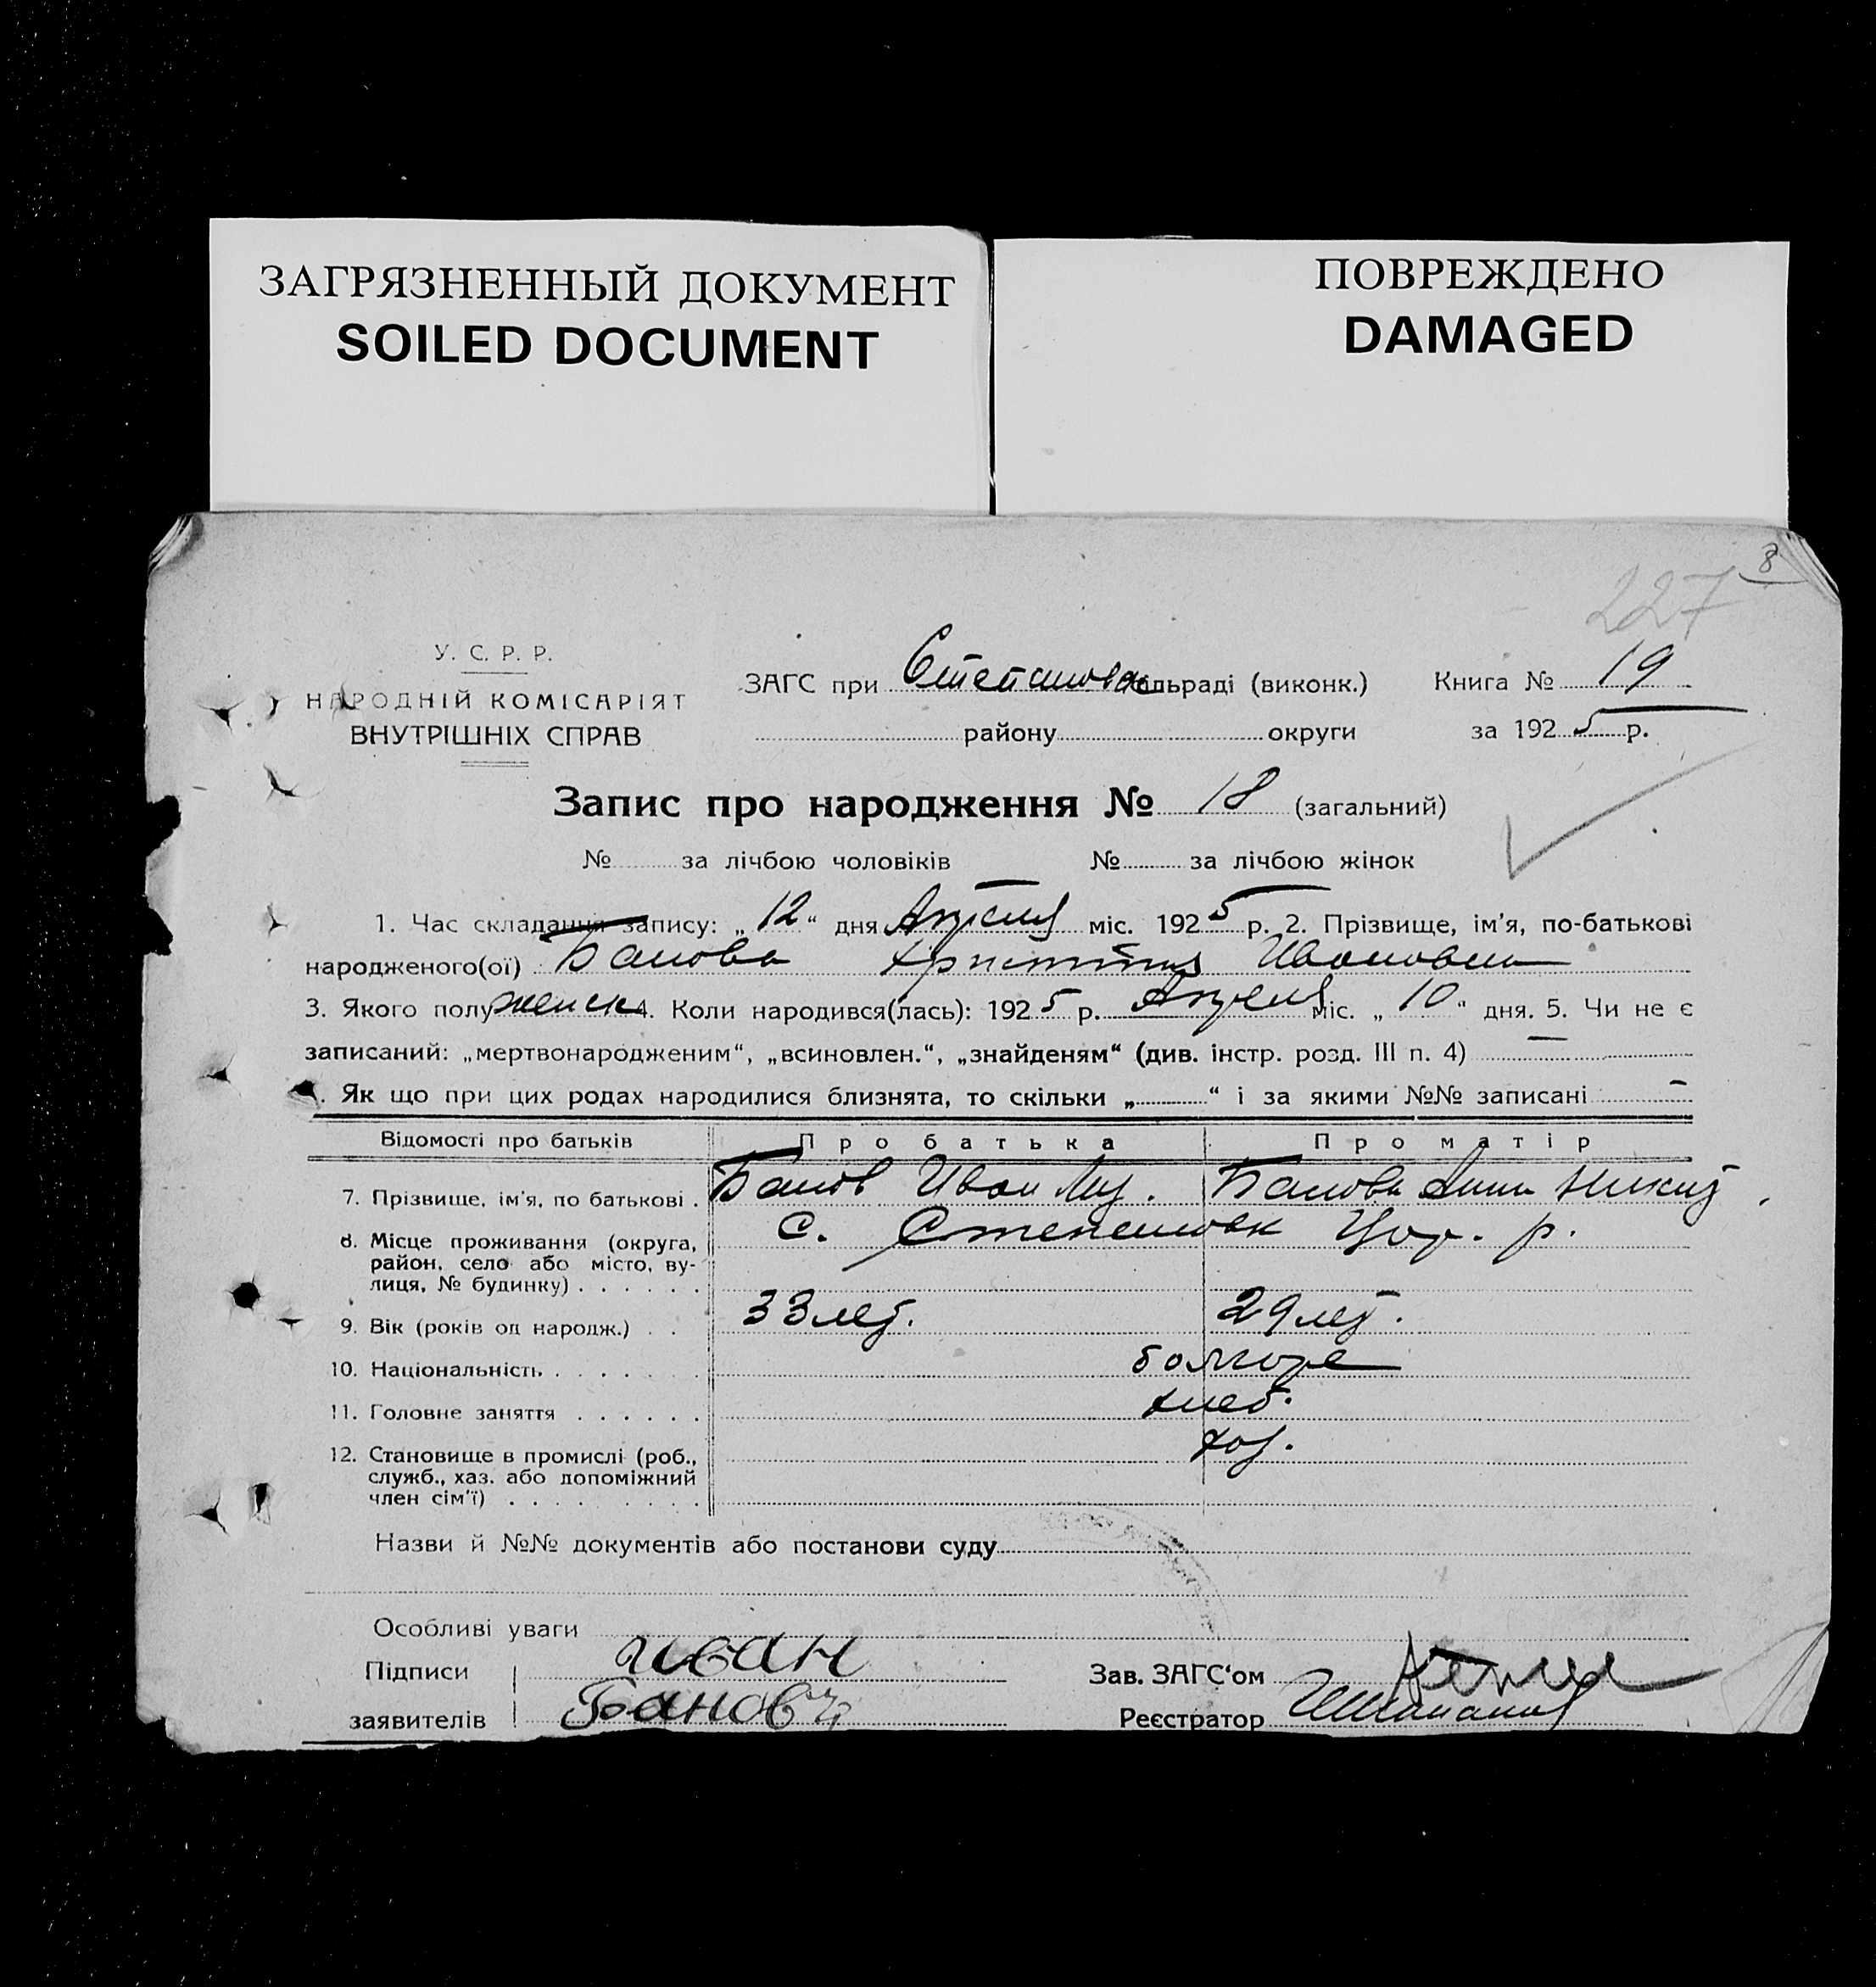 ЗАГРЯЗНЕННЫЙ ДОКУМЕНТ
SOILED DOCUMENT
ПОВРЕЖДЕНО
DAMAGED
8
227
У. С. Р. Р.
НАРОДНІЙ КОМІСАРІЯТ
ВНУТРІШНІХ СПРАВ
ЗАГС при Степановск сільраді (виконк.) Книга № 19
району округи за 1925 р.
Запис про народження № 18 (загальний)
№ за лічбою чоловіків № за лічбою жінок
1. Час складання запису: „12“ дня Апреля міс. 1925 р. 2. Прізвище, ім'я, по-батькові
народженого(ої) Банова Христина Ивановна
3. Якого полу женск 4. Коли народився(лась): 1925 р. Апреля міс. „10“ дня. 5. Чи не є
записаний: „мертвонародженим“, „всиновлен.“, „знайденям“ (див. інстр. розд. III п. 4) —
. Як що при цих родах народилися близнята, то скільки „ “ і за якими №№ записані —
Відомості про батьків Про батька Про матір
7. Прізвище, ім'я, по батькові . Банов Иван Банова Анна
8. Місце проживання (округа, район, село або місто, вулиця, № будинку) . . . . . . с. Степановк р.
9. Вік (років од народж.) . . 33 лет. 29 лет.
10. Національність . . . . . . . болгаре
11. Головне заняття . . . . . . хлеб.
12. Становище в промислі (роб., служб., хаз. або допоміжний член сім'ї) . . . . . . . . . хоз.
Назви й №№ документів або постанови суду
Особливі уваги
Підписи Иван
заявителів Банов
Зав. ЗАГС'ом
Реєстратор